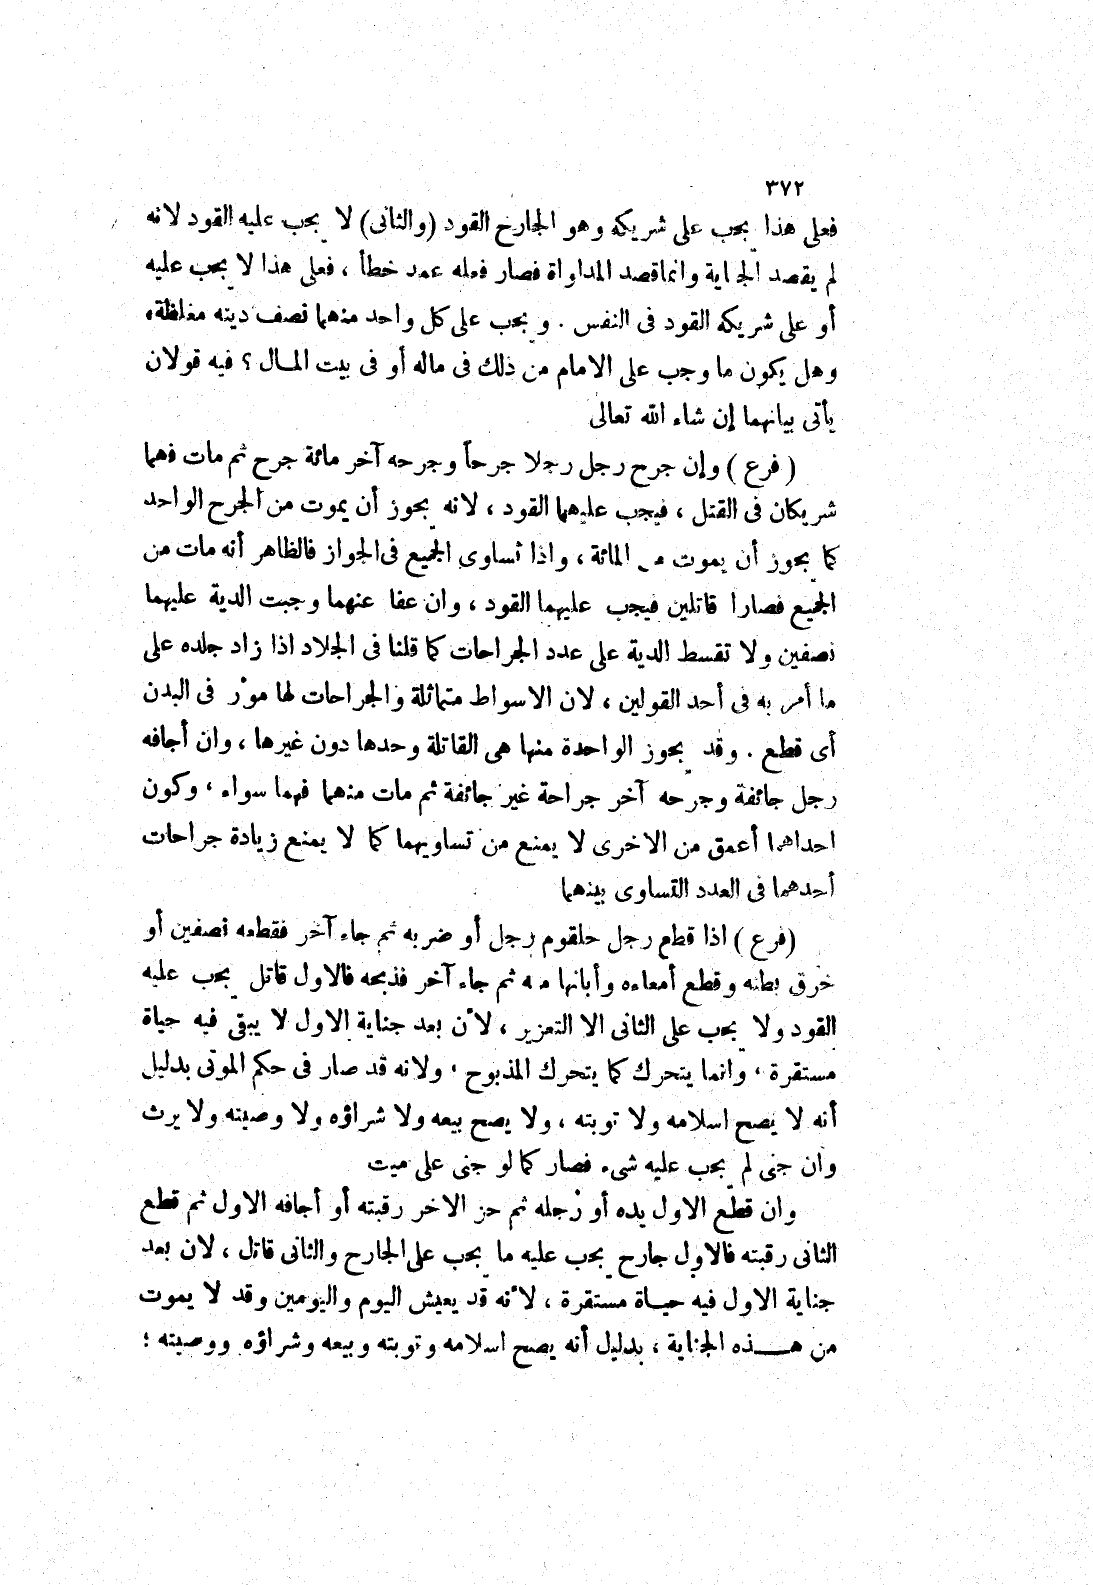 ٣٧٢
فعلى هذا يجب على شريكه وهو الجارح القود (والثانى) لا يجب عليه القود لانه
لم يقصد الجناية وانما قصد المداواة فصار فعله عمد خطأ ، فعلى هذا لا يجب عليه
أو على شريكه القود فى النفس . ويجب على كل واحد منهما نصف ديته مغلظة ،
وهل يكون ما وجب على الامام من ذلك فى ماله أو فى بيت المال ؟ فيه قولان
يأتى بيانهما إن شاء الله تعالى
( فرع ) وإن جرح رجل رجلا جرحاً وجرحه آخر مائة جرح ثم مات فهما
شريكان فى القتل ، فيجب عليهما القود ، لانه يجوز أن يموت من الجرح الواحد
كما يجوز أن يموت من المائة ، واذا تساوى الجميع فى الجواز فالظاهر أنه مات من
الجميع فصارا قاتلين فيجب عليهما القود ، وان عفا عنهما وجبت الدية عليهما
نصفين ولا تقسط الدية على عدد الجراحات كما قلنا فى الجلاد اذا زاد جلده على
ما أمر به فى أحد القولين ، لان الاسواط متماثلة والجراحات لها مور فى البدن
أى قطع . وقد يجوز الواحدة منها هى القاتلة وحدها دون غيرها ، وان أجافه
رجل جائفة وجرحه آخر جراحة غير جائفة ثم مات منهما فهما سواء ، وكون
احداهما أعمق من الاخرى لا يمنع من تساويهما كما لا يمنع زيادة جراحات
أحدهما فى العدد التساوى بينهما
( فرع ) اذا قطع رجل حلقوم رجل أو ضربه ثم جاء آخر فقطعه نصفين أو
خرق بطنه وقطع أمعاءه وأبانها منه ثم جاء آخر فذبحه فالاول قاتل يجب عليه
القود ولا يجب على الثانى الا التعزير ، لأن بعد جناية الاول لا يبقى فيه حياة
مستقرة ، وانما يتحرك كما يتحرك المذبوح ، ولانه قد صار فى حكم الموتى بدليل
أنه لا يصح اسلامه ولا توبته ، ولا يصح بيعه ولا شراؤه ولا وصيته ولا يرث
وان جنى لم يجب عليه شىء فصار كما لو جنى على ميت
وان قطع الاول يده أو رجله ثم حز الاخر رقبته أو أجافه الاول ثم قطع
الثانى رقبته فالاول جارح يجب عليه ما يجب على الجارح والثانى قاتل ، لان بعد
جناية الاول فيه حياة مستقرة ، لأنه قد يعيش اليوم واليومين وقد لا يموت
من هـذه الجناية ، بدليل أنه يصح اسلامه وتوبته وبيعه وشراؤه ووصيته ؛